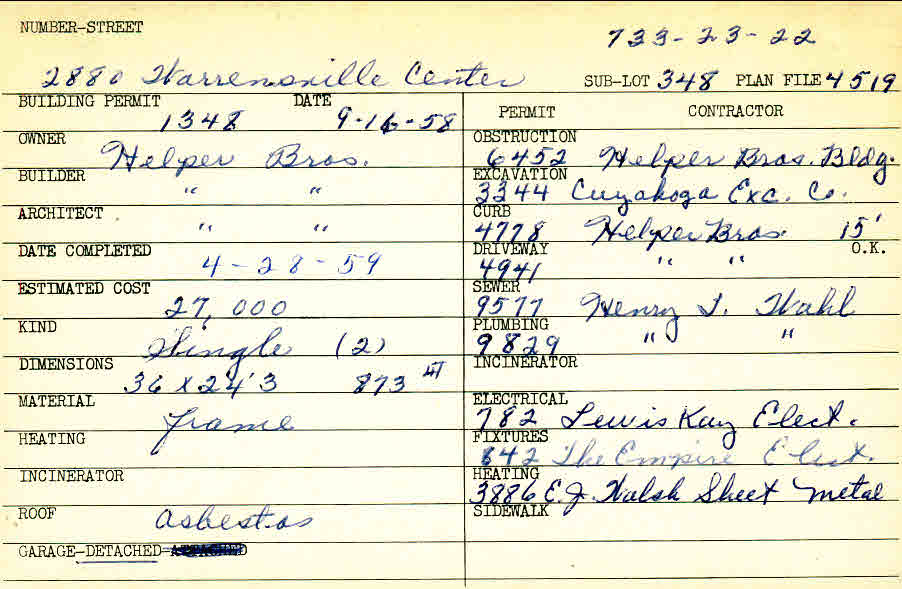 NUMBER-STREET
733-23-22
2880 Warrensville Center
SUB-LOT 348 PLAN FILE 4519
BUILDING PERMIT DATE
1348 9-16-58
PERMIT CONTRACTOR
OWNER
Helper Bros.
OBSTRUCTION
6452 Helper Bros. Bldg.
BUILDER
" "
EXCAVATION
3344 Cuyahoga Exc. Co.
ARCHITECT
" "
CURB
4778 Helper Bros. 15'
DATE COMPLETED
4-28-59
DRIVEWAY O.K.
4941 " "
ESTIMATED COST
27,000
SEWER
9577 Henry J. Wahl
KIND
Single (2)
PLUMBING
9829 " "
DIMENSIONS
36 x 24'3 873
INCINERATOR
MATERIAL
frame
ELECTRICAL
782 Lewis Kay Elect.
HEATING
FIXTURES
642 The Empire Elect.
INCINERATOR
HEATING
3886 E.J. Walsh Sheet Metal
ROOF
asbestos
SIDEWALK
GARAGE-DETACHED-ATTACHED